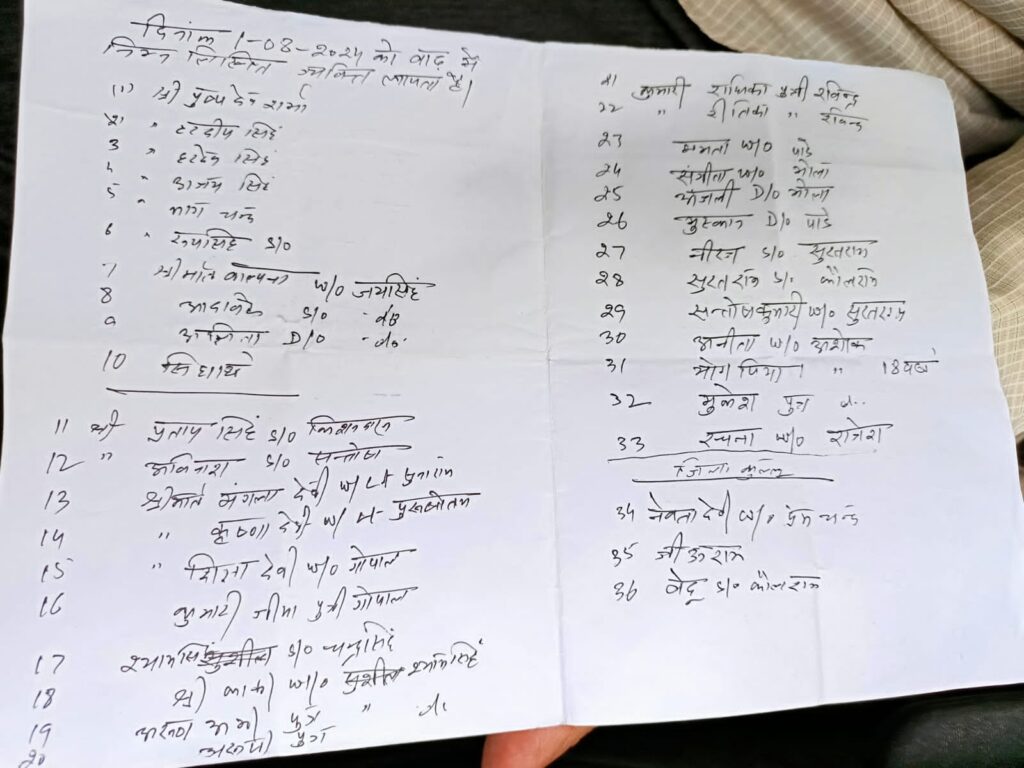 दिनांक 1-08-2024 को बाढ़ से
निम्न लिखित व्यक्ति लापता है।
(1) श्री पुष्प देव शर्मा
2 " हरदीप सिंह
3 " हरदेव सिंह
4 " अजय सिंह
5 " भाग चन्द
6 " रूपसिंह S/O
7 श्रीमति कल्पना W/O जयसिंह
8 S/O -do
9 D/O -do-
10 सिधार्थ
11 श्री प्रताप सिंह S/O
12 " अविनाश S/O सन्तोष
13 श्रीमति मंगला देवी W/O
14 " कृष्णा देवी W/ पुरूषोतम
15 " देवी W/O गोपाल
16 कुमारी जीया पुत्री गोपाल
17 श्यामसिंह S/O चन्द्रसिंह
18 श्री W/O श्यामसिंह
19 पुत्र " do
20 पुत्र
21 कुमारी राधिका पुत्री रविन्द्र
22 " रीतिका " रविन्द्र
23 ममता W/O पांडे
24 संगीता W/O भोला
25 अंजली D/O भोला
26 मुस्कान D/O पांडे
27 नीरज S/O सुरतराम
28 सुरतराम S/O कौलराम
29 सन्तोषकुमारी W/O सुरतराम
30 अनीता W/O अशोक
31 योग प्रिया " 18 वर्ष
32 मुकेश पुत्र
33 रचना W/O राजेश
जिला कुल्लू
34 देवी W/O चन्द
35 जीऊराम
36 वेदू S/O कौलराम